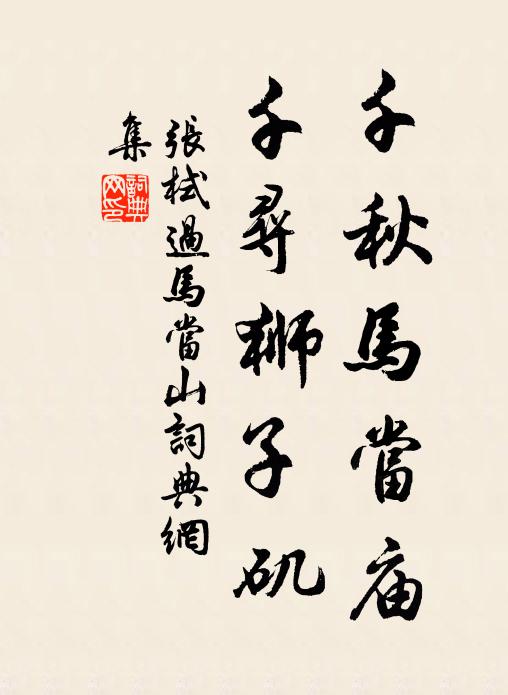 千秋馬當庙
千尋獅子矶
張栻過馬當山詞典網
集
詞典
网印